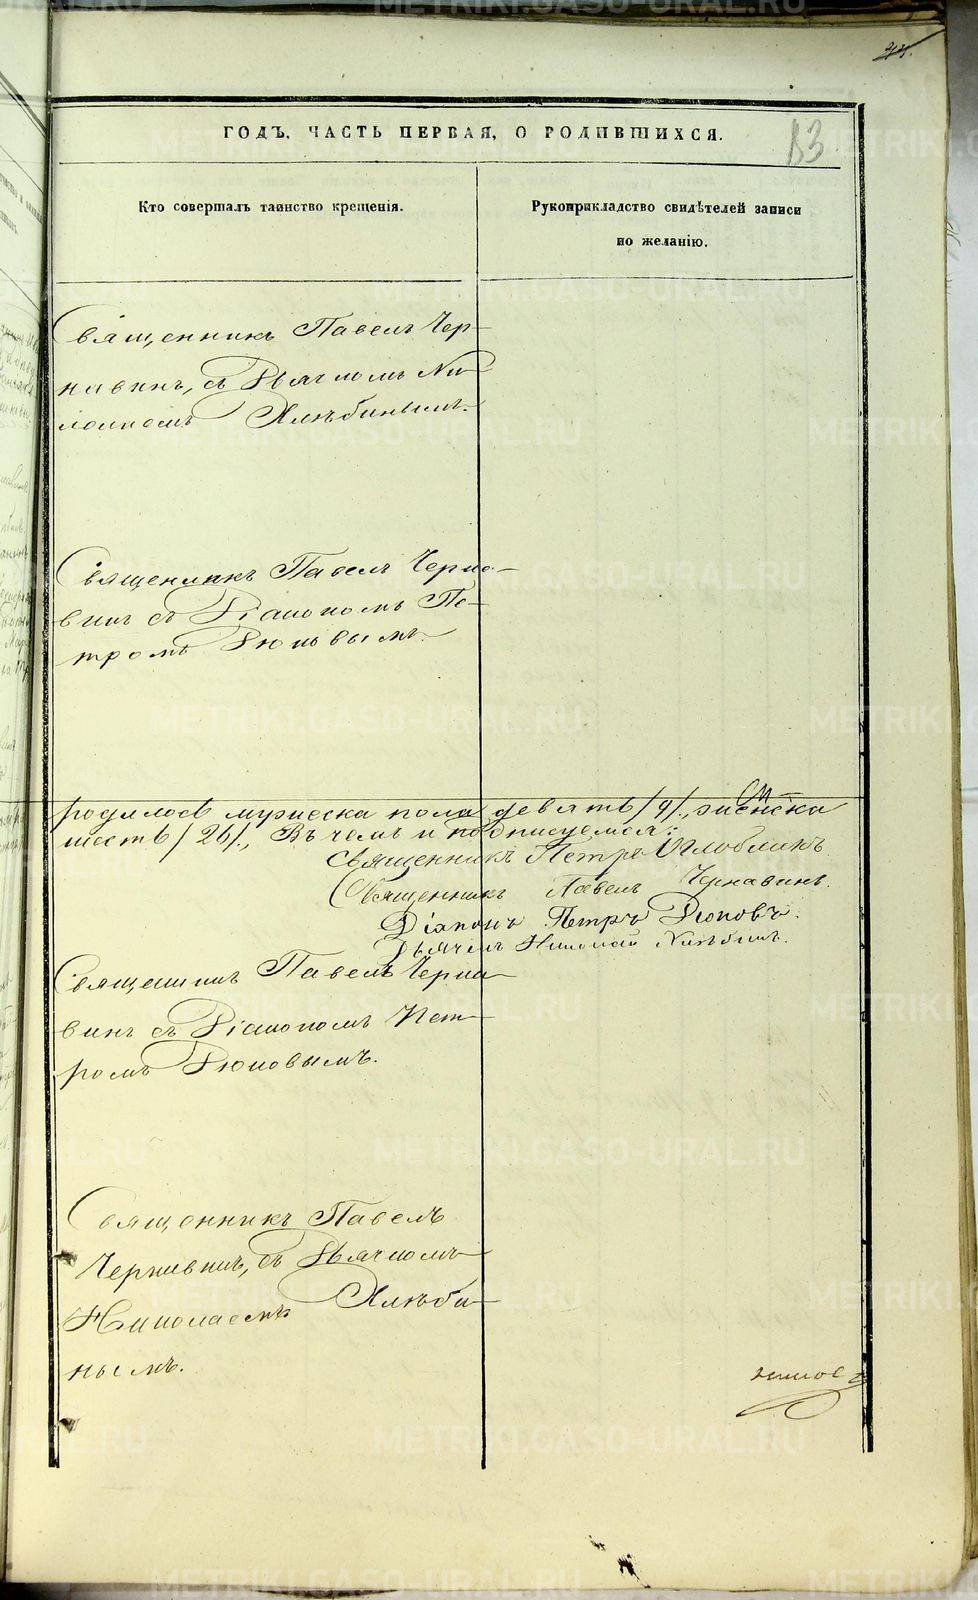 44.
ГОДЪ, ЧАСТЬ ПЕРВАЯ, О РОДИВШИХСЯ.
83
Кто совершалъ таинство крещенія.
Рукоприкладство свидѣтелей записи
по желанію.
Священникъ Павелъ Чер-
навинъ, съ Дьячкомъ Ни-
колаемъ Хлѣбинымъ.
Священникъ Павелъ Черна-
винъ съ Діакономъ Пе-
тромъ Дюковымъ.
родилось мужеска пола девять /9/., женска
шесть /26/., Въ чемъ и подписуемся:
Священникъ Петръ Иглобликъ
Священникъ Павелъ Чернавинъ.
Діаконъ Петръ Дюковъ.
Дьячекъ Николай Хлѣбинъ.
Священникъ Павелъ Черна-
винъ съ Діакономъ Пет-
ромъ Дюковымъ.
Священникъ Павелъ
Чернавинъ, съ Дьячкомъ
Николаемъ Хлѣби-
нымъ.
METRIKI.GASO-URAL.RU